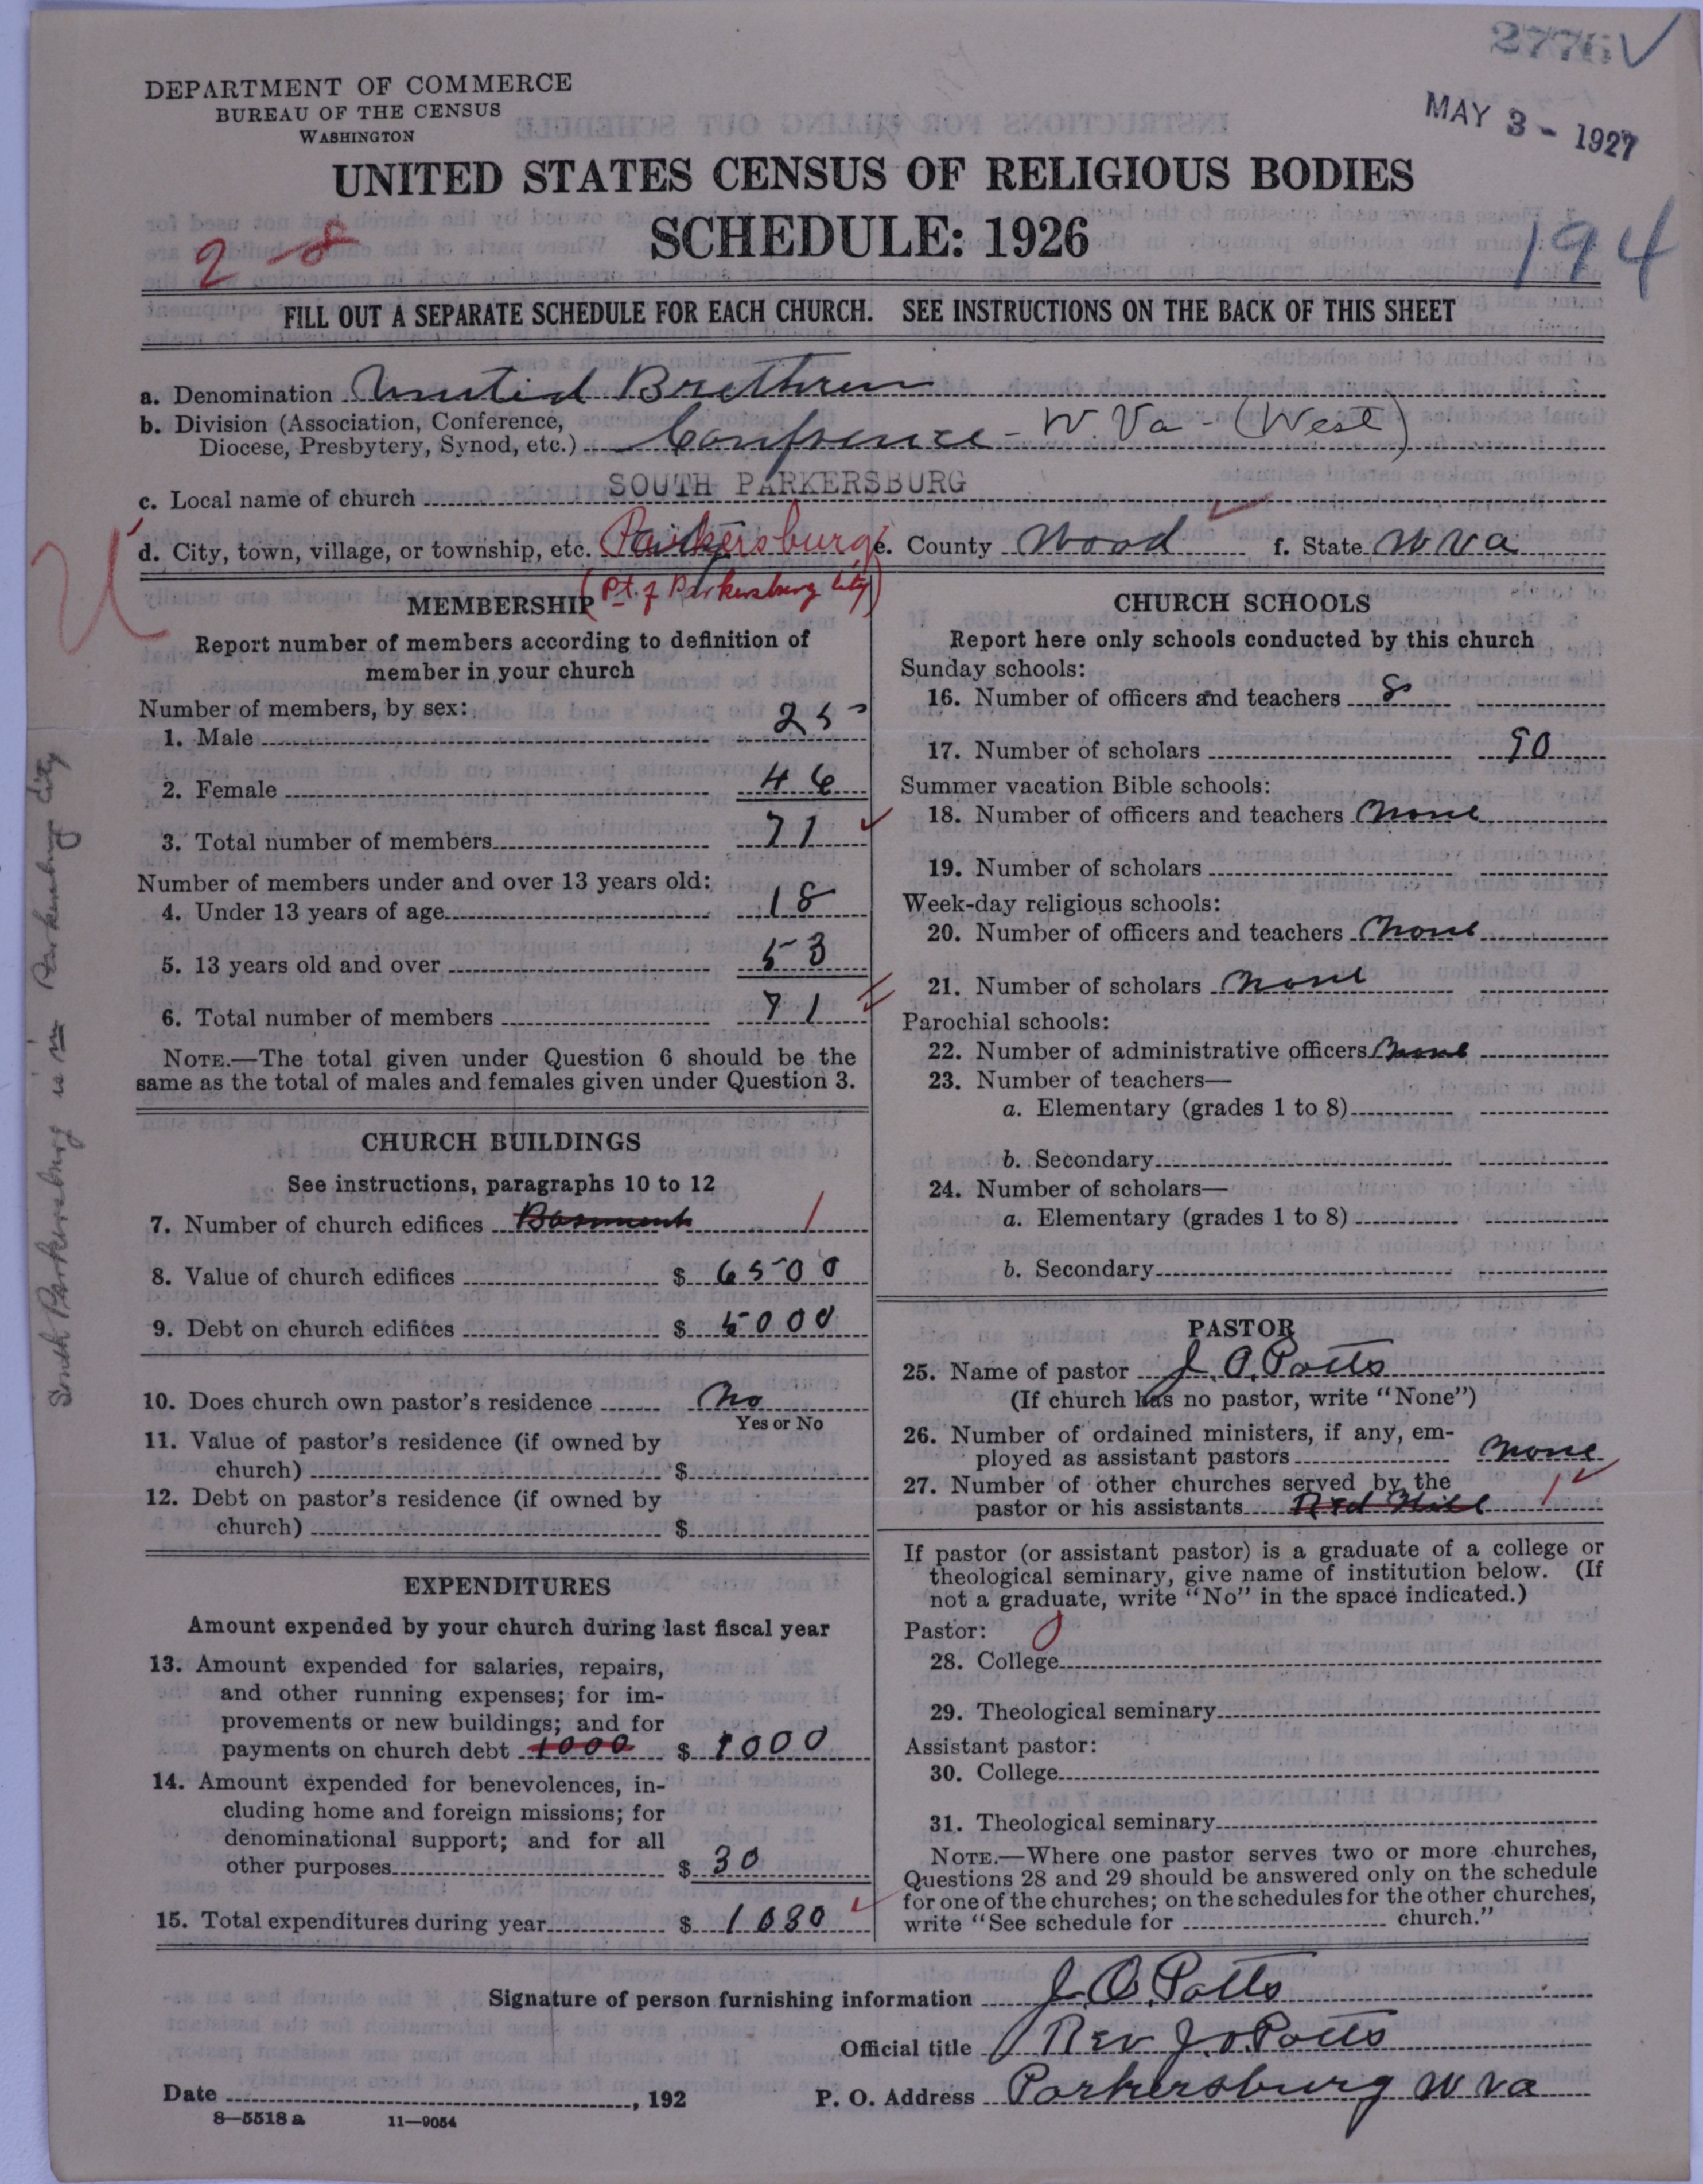 2776 ✓
DEPARTMENT OF COMMERCE
BUREAU OF THE CENSUS
WASHINGTON
MAY 3 - 1927
UNITED STATES CENSUS OF RELIGIOUS BODIES
SCHEDULE: 1926
2-8
194
FILL OUT A SEPARATE SCHEDULE FOR EACH CHURCH. SEE INSTRUCTIONS ON THE BACK OF THIS SHEET
a. Denomination United Brethren
b. Division (Association, Conference,
Diocese, Presbytery, Synod, etc.) Confrence - W. Va - (West)
c. Local name of church SOUTH PARKERSBURG
d. City, town, village, or township, etc. Parkersburg e. County Wood f. State W Va
(Pt. of Parkersburg City)
South Parkersburg is in Parkersburg City
MEMBERSHIP
Report number of members according to definition of
member in your church
Number of members, by sex:
1. Male 25
2. Female 46
3. Total number of members 71
Number of members under and over 13 years old:
4. Under 13 years of age 18
5. 13 years old and over 53
6. Total number of members 71
NOTE.—The total given under Question 6 should be the
same as the total of males and females given under Question 3.
CHURCH BUILDINGS
See instructions, paragraphs 10 to 12
7. Number of church edifices Basment 1
8. Value of church edifices $ 6500
9. Debt on church edifices $ 5000
10. Does church own pastor's residence No
Yes or No
11. Value of pastor's residence (if owned by
church) $
12. Debt on pastor's residence (if owned by
church) $
EXPENDITURES
Amount expended by your church during last fiscal year
13. Amount expended for salaries, repairs,
and other running expenses; for im-
provements or new buildings; and for
payments on church debt 1000 $ 1000
14. Amount expended for benevolences, in-
cluding home and foreign missions; for
denominational support; and for all
other purposes $ 30
15. Total expenditures during year $ 1030
CHURCH SCHOOLS
Report here only schools conducted by this church
Sunday schools:
16. Number of officers and teachers 8
17. Number of scholars 90
Summer vacation Bible schools:
18. Number of officers and teachers None
19. Number of scholars
Week-day religious schools:
20. Number of officers and teachers None
21. Number of scholars None
Parochial schools:
22. Number of administrative officers None
23. Number of teachers—
a. Elementary (grades 1 to 8)
b. Secondary
24. Number of scholars—
a. Elementary (grades 1 to 8)
b. Secondary
PASTOR
25. Name of pastor J. O. Potts
(If church has no pastor, write "None")
26. Number of ordained ministers, if any, em-
ployed as assistant pastors None
27. Number of other churches served by the
pastor or his assistants Red Hill 1
If pastor (or assistant pastor) is a graduate of a college or
theological seminary, give name of institution below. (If
not a graduate, write "No" in the space indicated.)
Pastor: 0
28. College
29. Theological seminary
Assistant pastor:
30. College
31. Theological seminary
NOTE.—Where one pastor serves two or more churches,
Questions 28 and 29 should be answered only on the schedule
for one of the churches; on the schedules for the other churches,
write "See schedule for church."
Signature of person furnishing information J. O. Potts
Official title Rev J. O. Potts
Date , 192 P. O. Address Parkersburg W Va
8—5518 a 11—9054